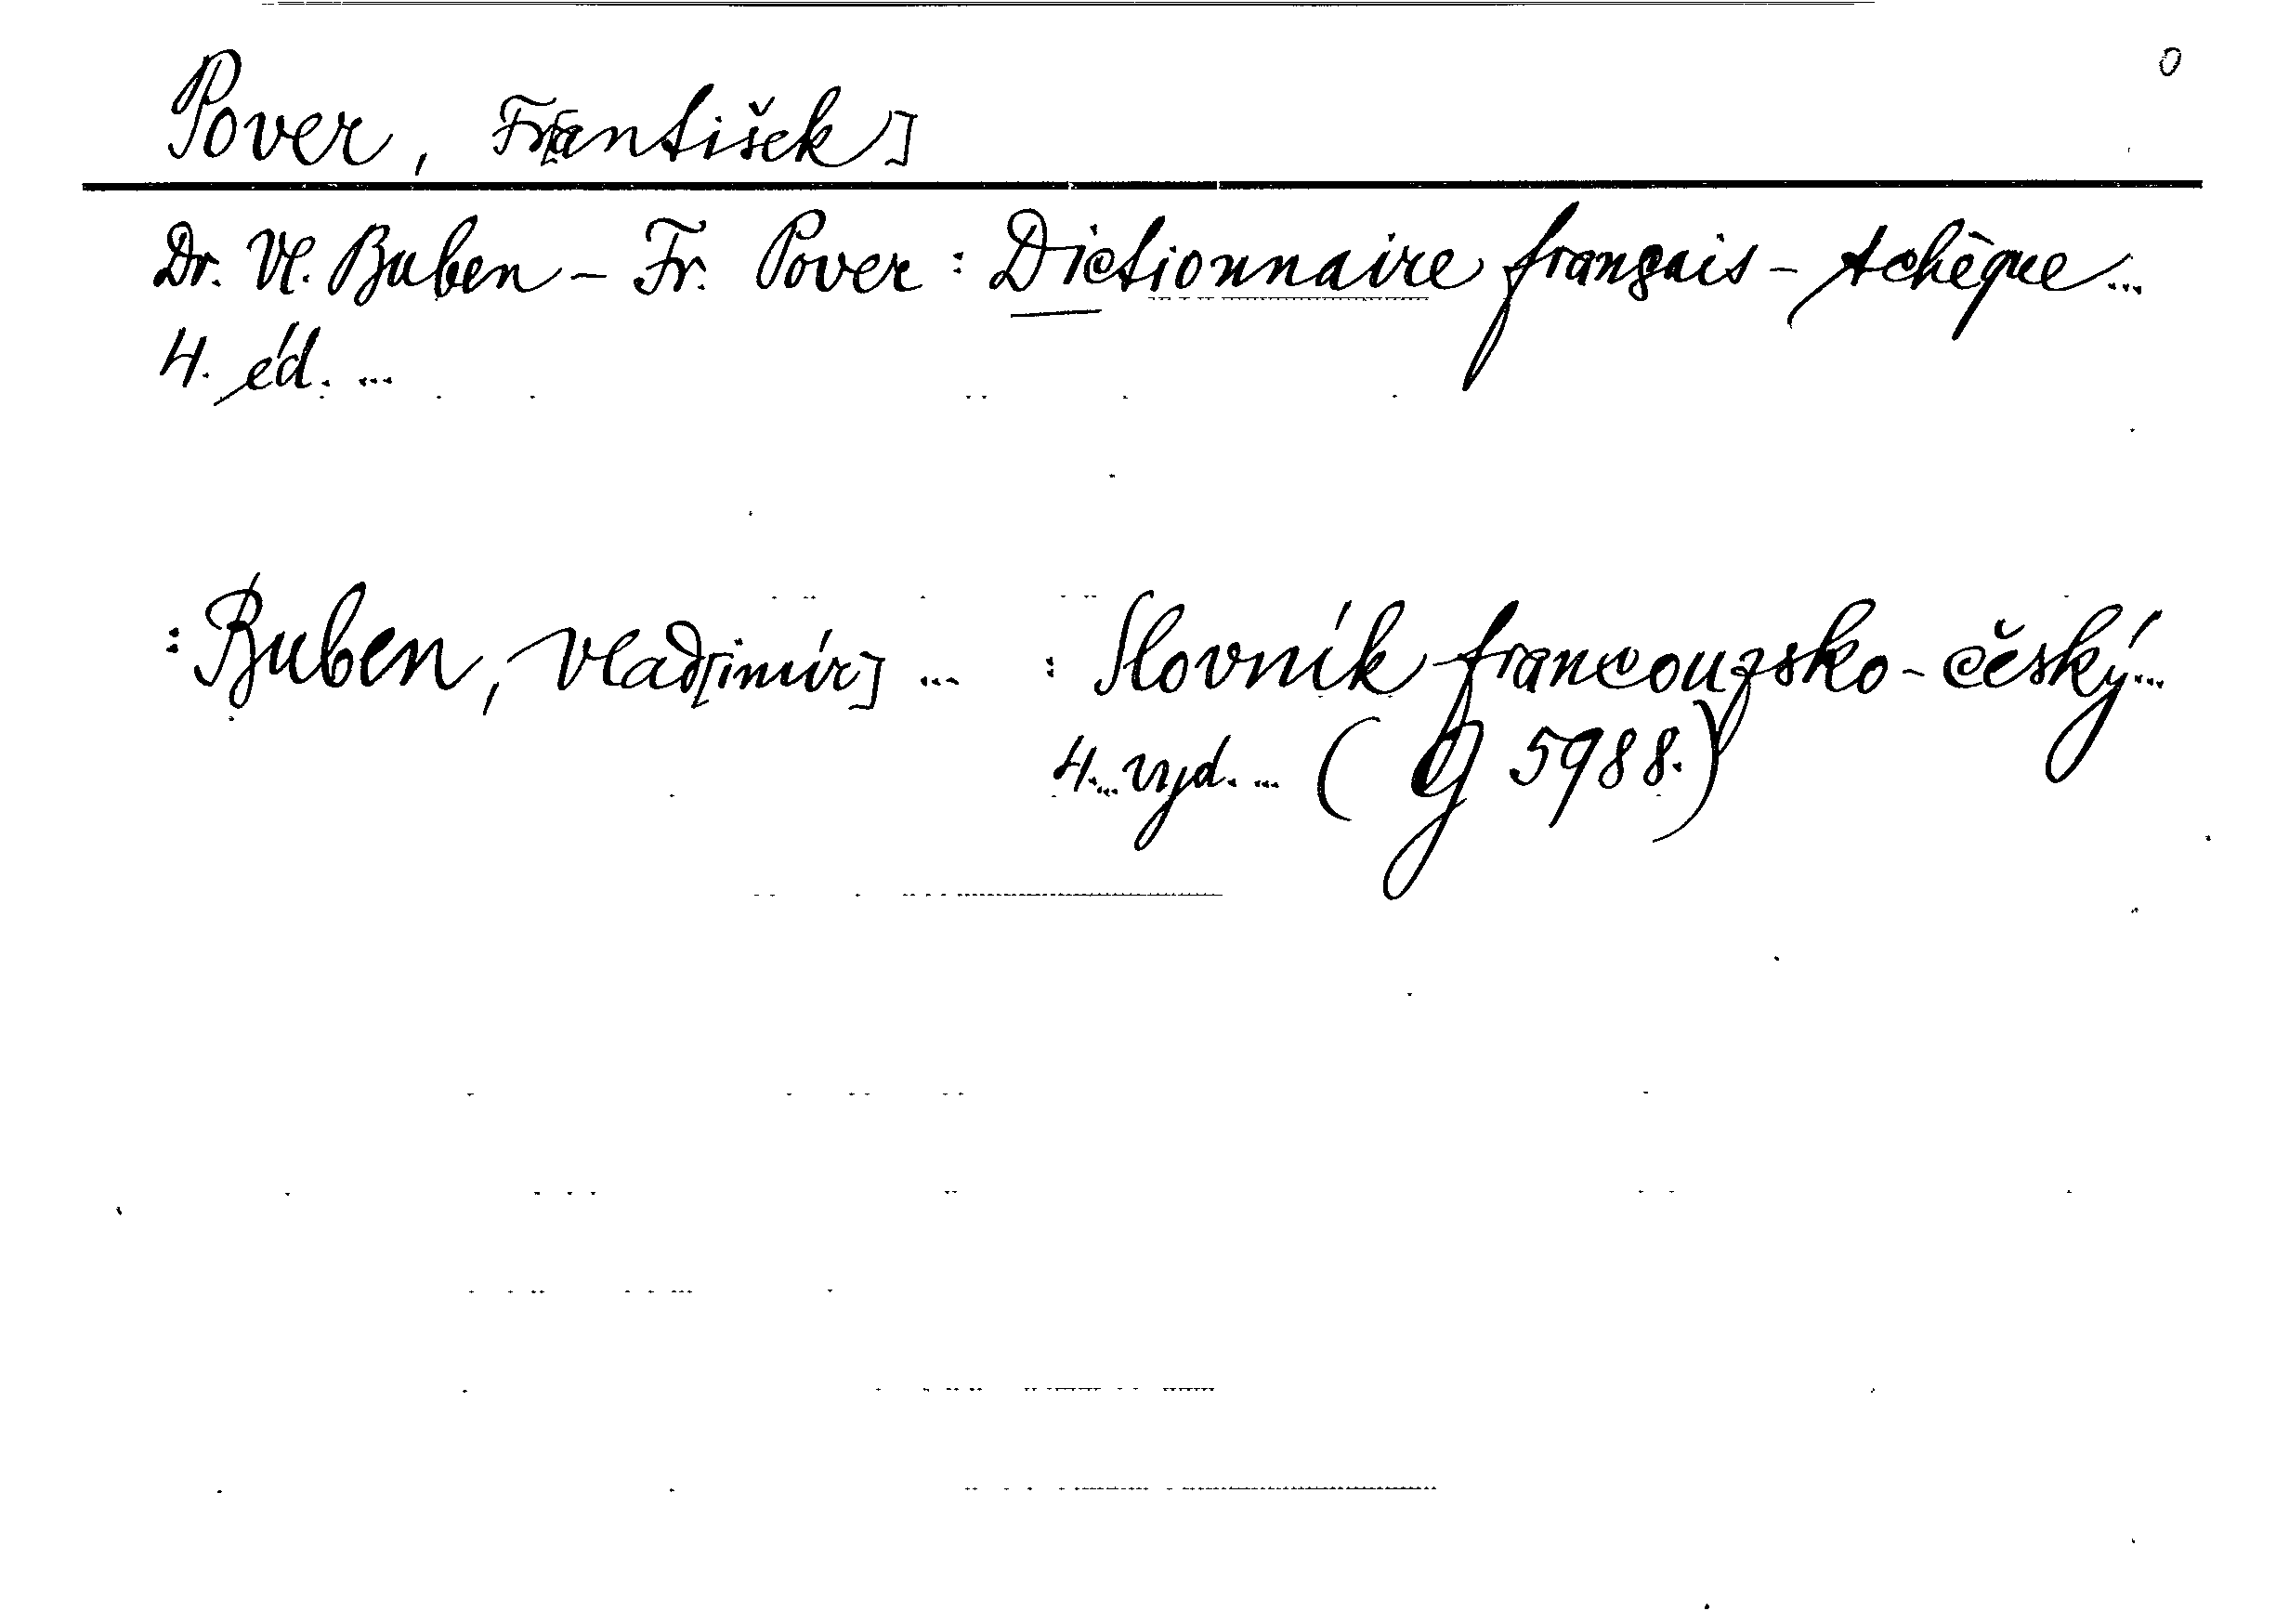 0
Pover, Fr[antišek]
Dr. Vl. Buben - Fr. Pover : Dictionnaire français - tchèque...
4. éd. ...
: Buben, Vlad[imír] ... : Slovník francouzsko - český...
4. ... vyd. ... ( G 5988.)